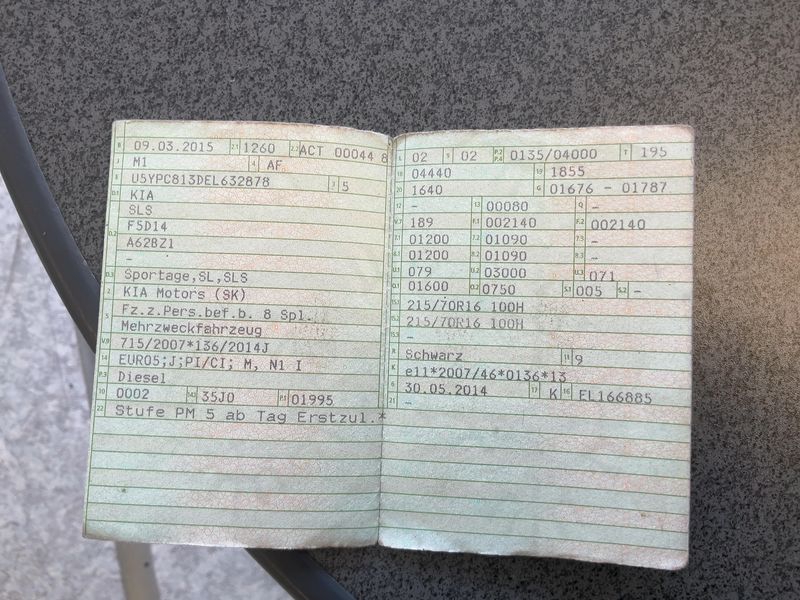 B 09.03.2015 2.1 1260 2.2 ACT 00044 8
J M1 4 AF
E U5YPC813DEL632878 3 5
D.1 KIA
SLS
D.2 F5D14
A62BZ1
–
D.3 Sportage,SL,SLS
2 KIA Motors (SK)
5 Fz.z.Pers.bef.b. 8 Spl.
Mehrzweckfahrzeug
V.9 715/2007*136/2014J
14 EURO5;J;PI/CI; M, N1 I
P.3 Diesel
10 0002 14.1 35J0 P.1 01995
22 Stufe PM 5 ab Tag Erstzul.*
L 02 9 02 P.2 P.4 0135/04000 T 195
18 04440 19 1855
20 1640 G 01676 – 01787
12 – 13 00080 Q –
V.7 189 F.1 002140 F.2 002140
7.1 01200 7.2 01090 7.3 –
8.1 01200 8.2 01090 8.3 –
U.1 079 U.2 03000 U.3 071
O.1 01600 O.2 0750 S.1 005 S.2 –
15.1 215/70R16 100H
15.2 215/70R16 100H
15.3 –
R Schwarz 11 9
K e11*2007/46*0136*13
6 30.05.2014 17 K 16 FL166885
21 –